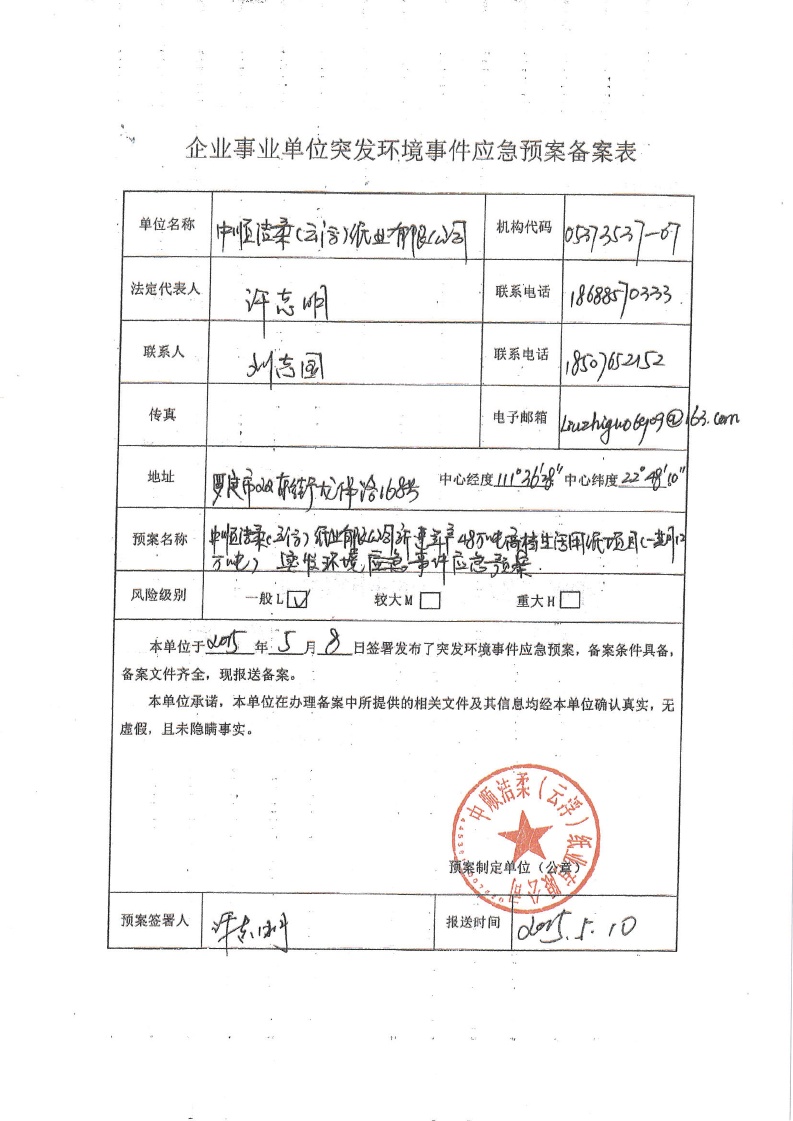 企业事业单位突发环境事件应急预案备案表
单位名称 中顺洁柔(云浮)纸业有限公司 机构代码 05373537-07
法定代表人 许志明 联系电话 18688570333
联系人 刘志国 联系电话 18507652152
传真 电子邮箱 Liuzhiguo6909@163.com
地址 罗定市 街龙保路168号 中心经度 111°36′28″ 中心纬度 22°48′10″
预案名称 中顺洁柔(云浮)纸业有限公司新建年产48万吨高档生活用纸项目(一期12
万吨) 突发环境应急事件应急预案
风险级别 一般L ☑ 较大M □ 重大H □
本单位于 2015 年 5 月 8 日签署发布了突发环境事件应急预案，备案条件具备，
备案文件齐全，现报送备案。
本单位承诺，本单位在办理备案中所提供的相关文件及其信息均经本单位确认真实，无
虚假，且未隐瞒事实。
中顺洁柔（云浮）纸业有限公司
预案制定单位（公章）
预案签署人 许志明 报送时间 2015.5.10